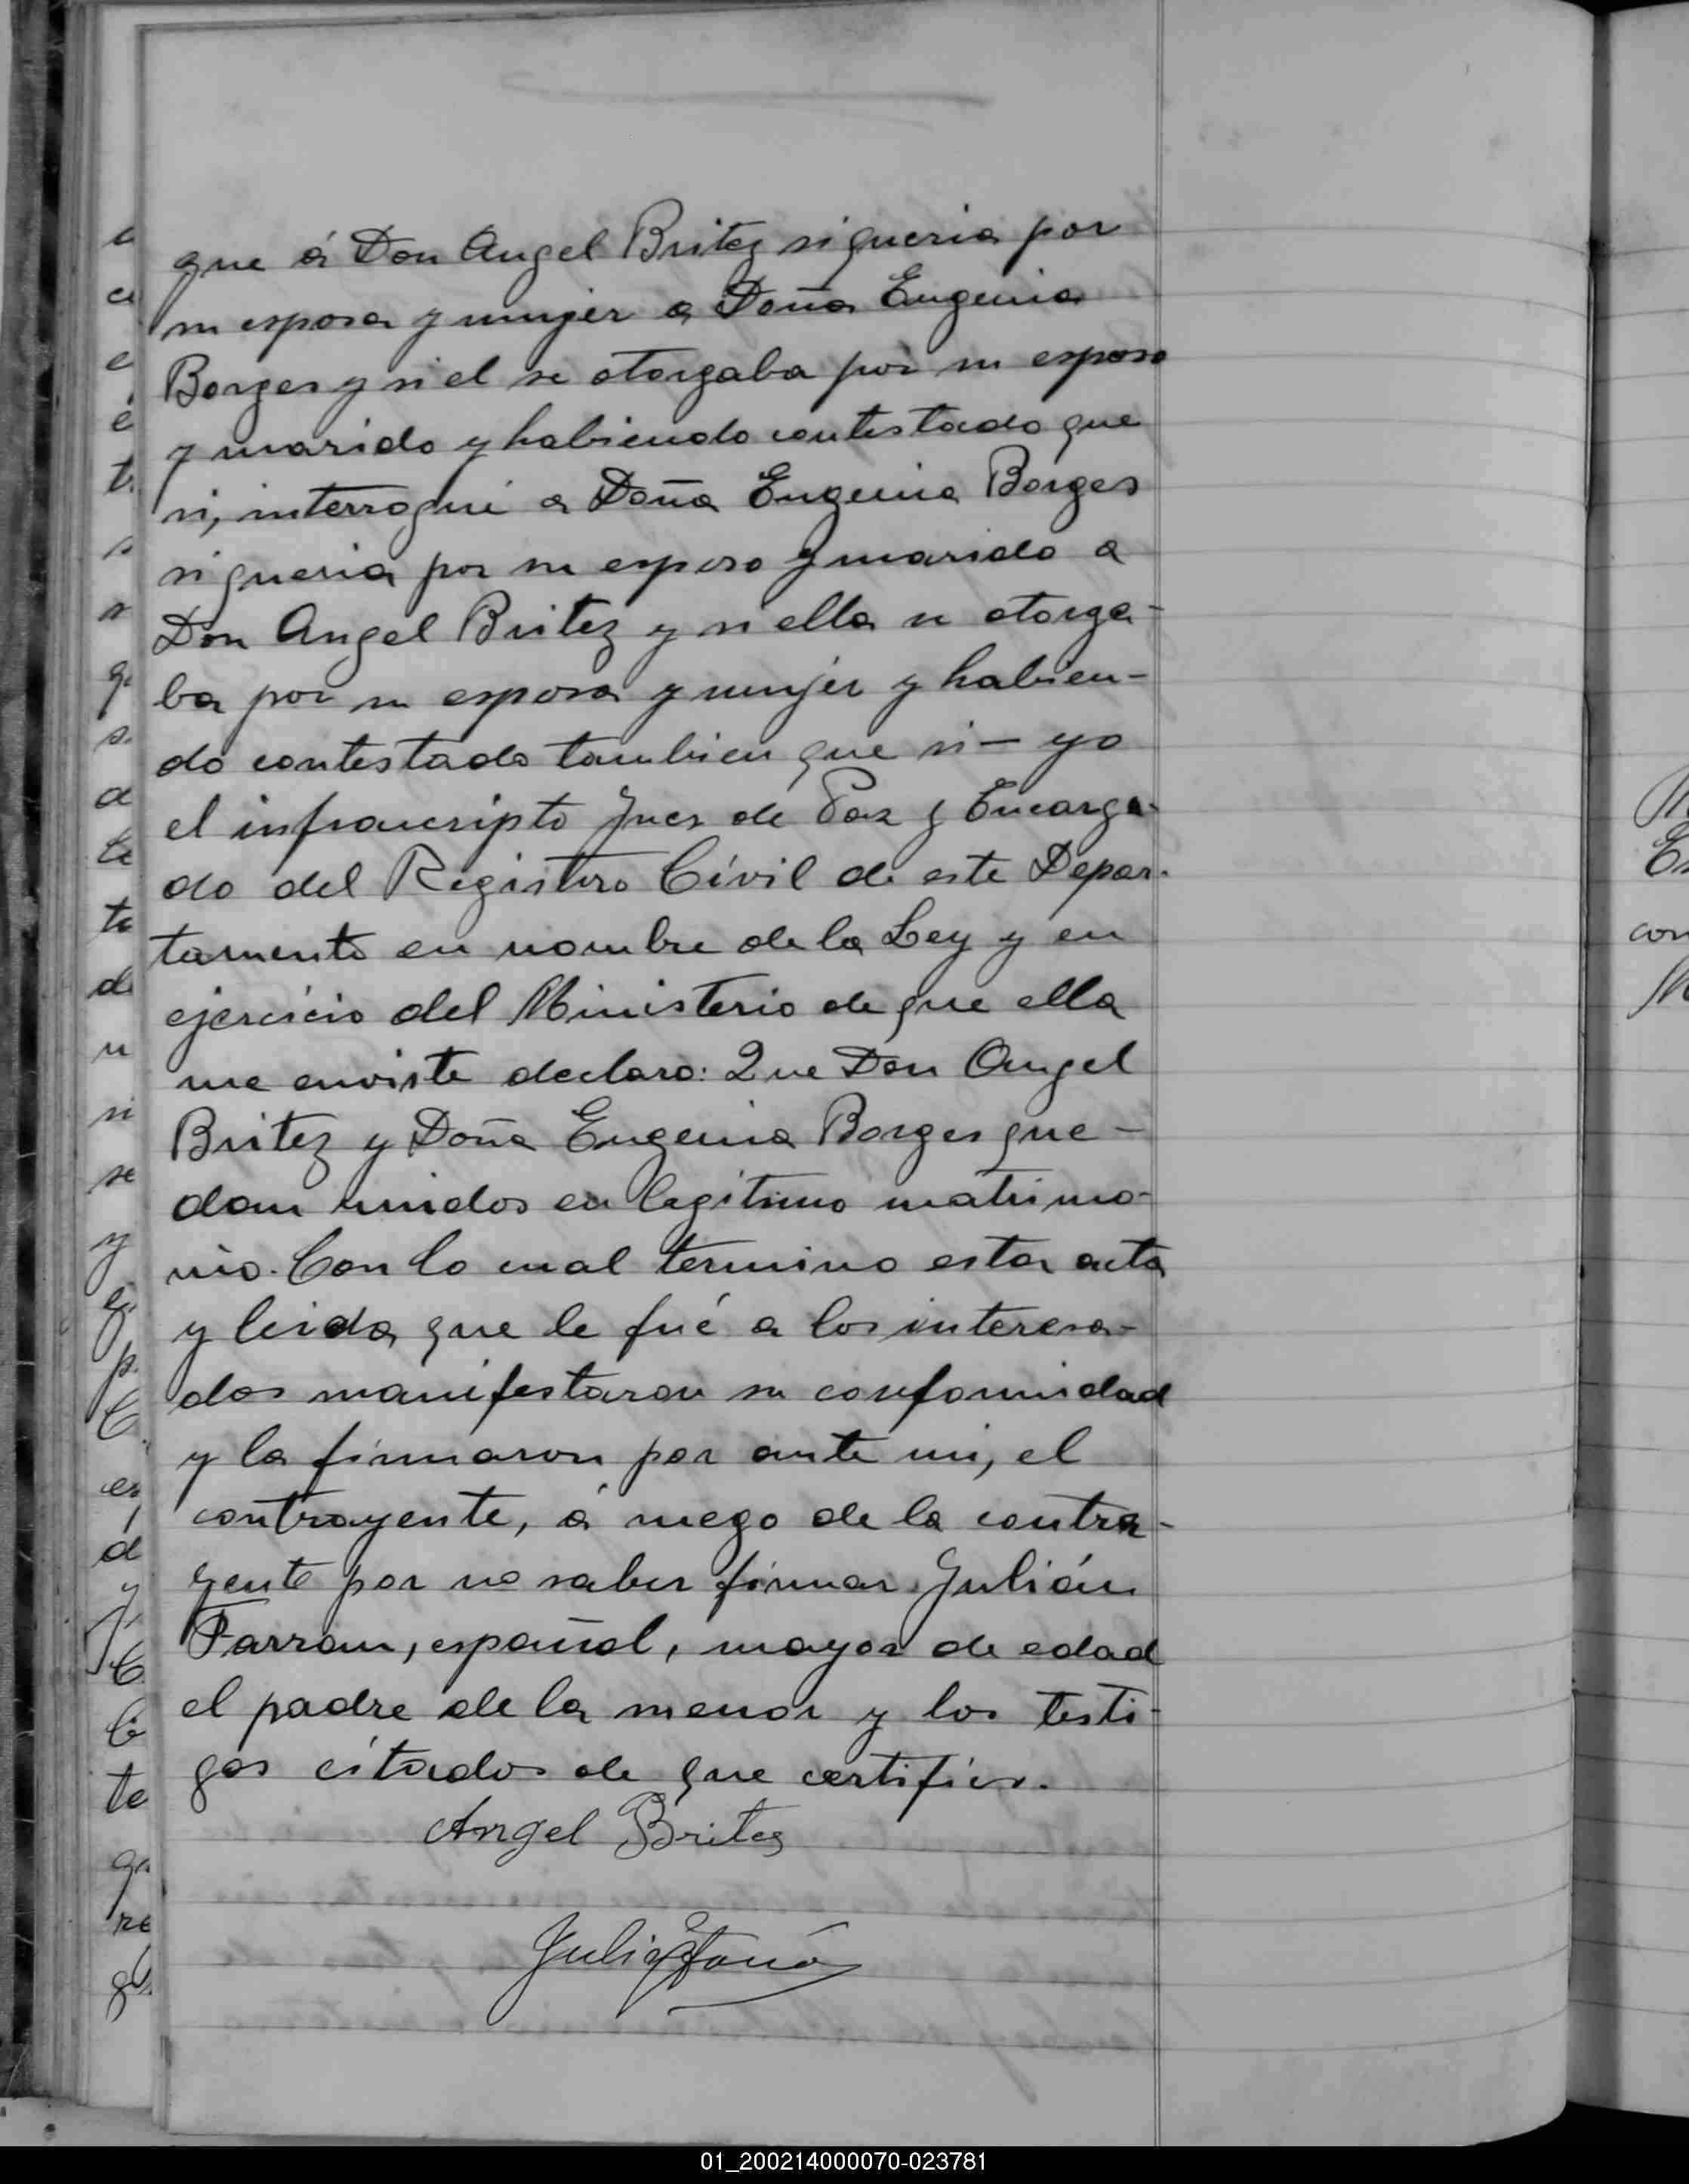 que á Don Angel Britez si queria por
su esposa y mujer a Doña Eugenia
Borges y si el se otorgaba por su esposo
y marido y habiendo contestado que
si, interrogué a Doña Eugenia Borges
si queria por su esposo y marido a
Don Angel Britez y si ella se otorga-
ba por su esposa y mujer y habien-
do contestado tambien que si — yo
el infrascripto Juez de Paz y Encarga-
do del Registro Civil de este Depar-
tamento en nombre de la Ley y en
ejercicio del Ministerio de que ella
me enviste declaro: Que Don Angel
Britez y Doña Eugenia Borges que-
dan unidos en legitimo matrimo-
nio. Con lo cual termino esta acta
y leida que le fué a los interesa-
dos manifestaron su conformidad
y la firmaron por ante mi, el
contrayente, á ruego de la contra-
yente por no saber firmar Julián
Farran, español, mayor de edad
el padre de la menor y los testi-
gos citados de que certifico.
Angel Britez
01_200214000070-023781